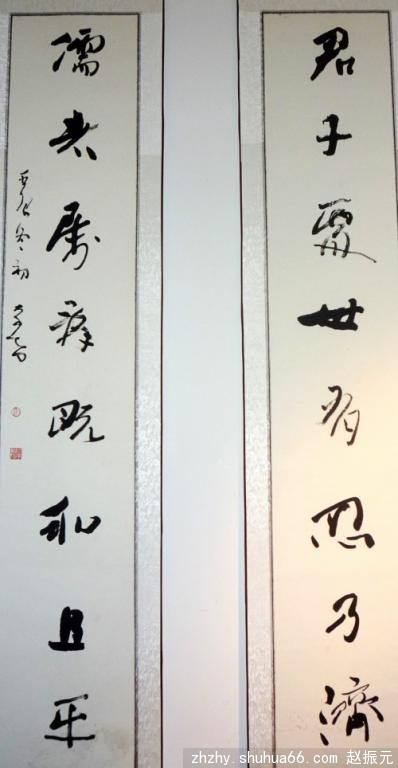 君子處世有忍乃濟
儒者屬辭既和且平
冬初
zhzhy.shuhua66.com 赵振元